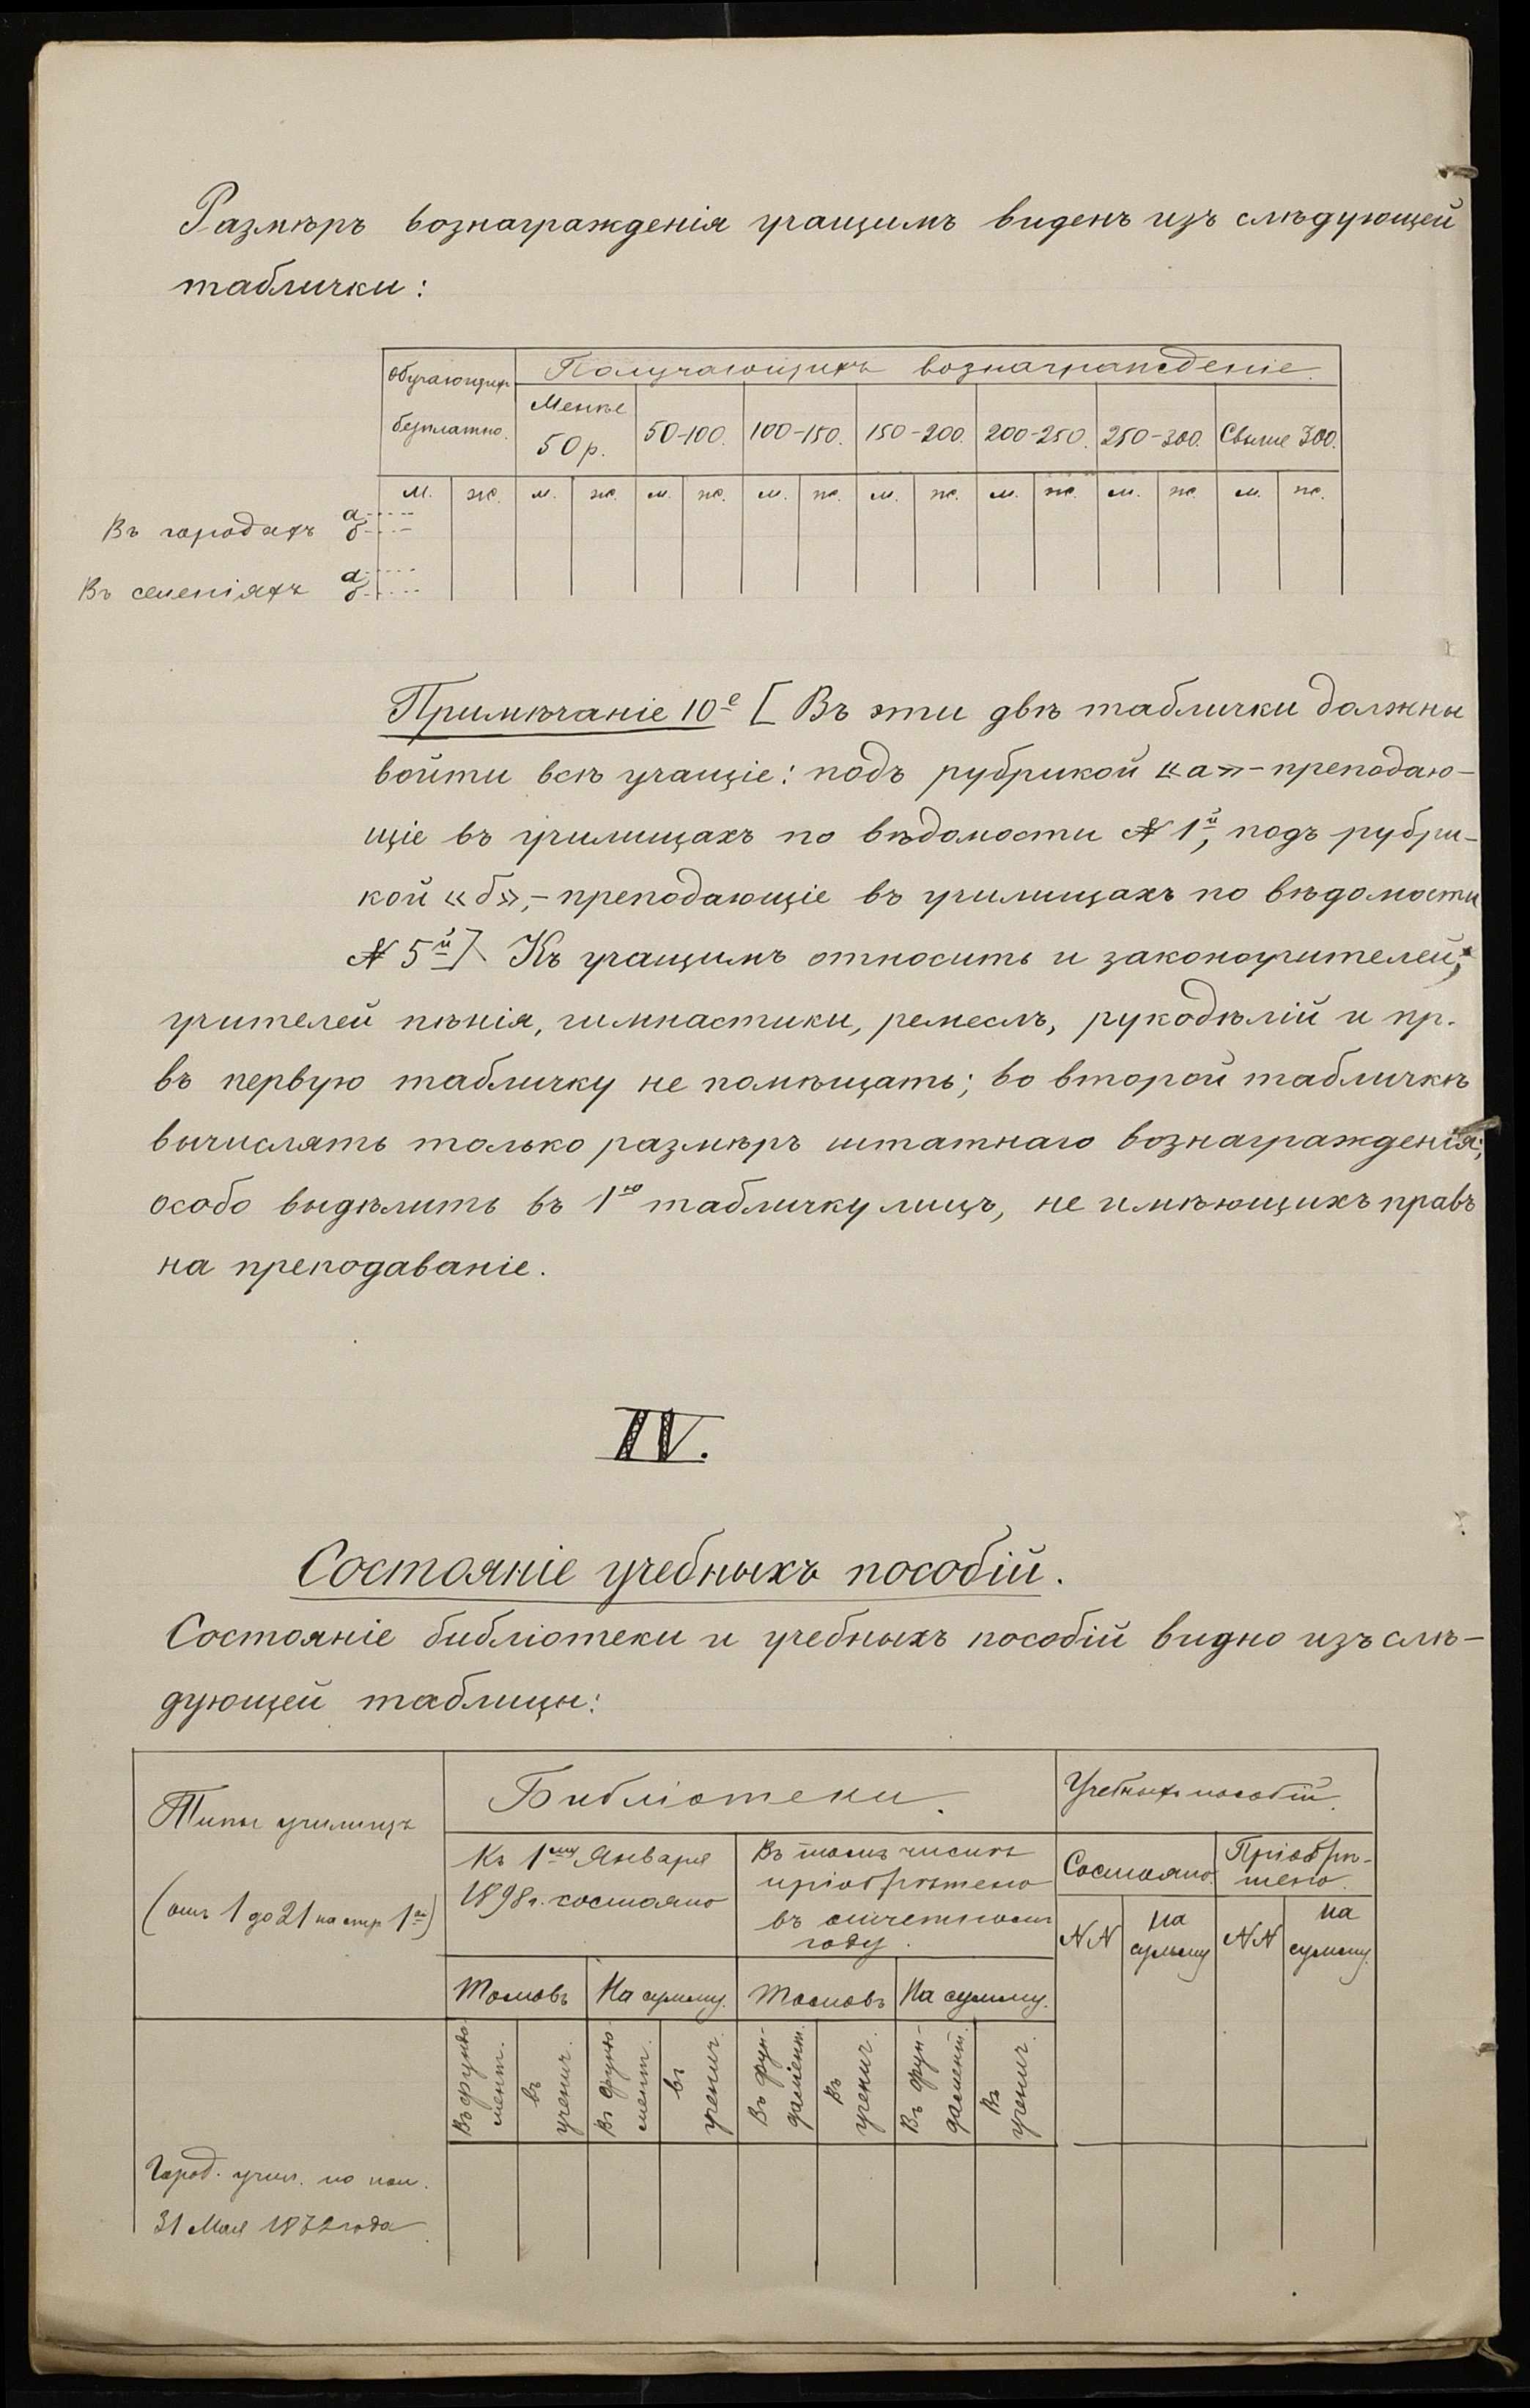 Размѣръ вознагражденія учащимъ виденъ изъ слѣдующей
таблички:
Обучающихъ Получающихъ вознагражденіе.
безплатно. Менѣе 50 р. 50-100. 100-150. 150-200. 200-250. 250-300. Свыше 300.
м. ж. м. ж. м. ж. м. ж. м. ж. м. ж. м. ж. м. ж.
Въ городахъ а б
Въ селеніяхъ а б
Примѣчаніе 10е [ Въ эти двѣ таблички должны
войти всѣ учащіе: подъ рубрикой «а» - преподаю-
щіе въ училищахъ по вѣдомости № 1й, подъ рубри-
кой «б», - преподающіе въ училищахъ по вѣдомости
№ 5й] Къ учащимъ относить и законоучителей;
учителей пѣнія, гимнастики, ремеслъ, рукодѣлій и пр.
въ первую табличку не помѣщать; во второй табличкѣ
вычислять только размѣръ штатнаго вознагражденія;
особо выдѣлить въ 1ю табличку лицъ, не имѣющихъ правъ
на преподаваніе.
IV.
Состояніе учебныхъ пособій.
Состояніе библіотеки и учебныхъ пособій видно изъ слѣ-
дующей таблицы:
Типы училищъ
(отъ 1 до 21 на стр 1ой)
Библіотеки.
Учебныхъ пособій.
Къ 1му Января
1898 г. состояло
Въ томъ числѣ
пріобрѣтено
въ отчетномъ
году.
Состояло
Пріобрѣ-
тено.
NN на сумму NN на сумму.
Томовъ На сумму. Томовъ На сумму.
Въ фунда-
мент.
въ
ученич.
Въ фунда-
мент.
въ
ученич.
Въ фун-
дамент.
Въ
ученич.
Въ фун-
дамент.
Въ
ученич.
Город. учил. по пол.
31 Мая 1872 года